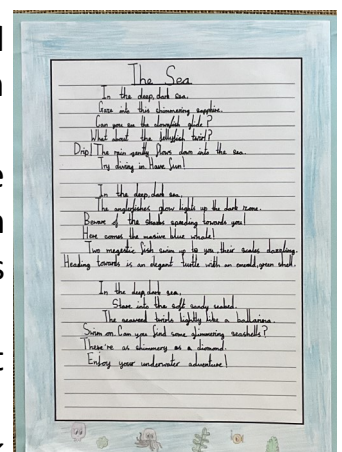 The Sea
In the deep, dark sea.
Gaze into this shimmering sapphire.
Can you see the clownfish glide?
What about the jellyfish twirl?
Drip! The rain gently flows down into the sea.
Try diving in. Have fun!
In the deep, dark sea.
The anglerfishes glow lights up the dark
Beware of the sharks speeding towards you!
Here comes the massive blue whale!
Two magestic fish swim up to you, their scales dazzling.
Heading towards is an elegant turtle with an emerald, green shell.
In the deep, dark sea.
Stare into the soft sandy seabed.
The seaweed twirls lightly like a ballarina.
Swim on. Can you find some glimmering seashells?
These're as shimmery as a diamond.
Enjoy your underwater adventure!